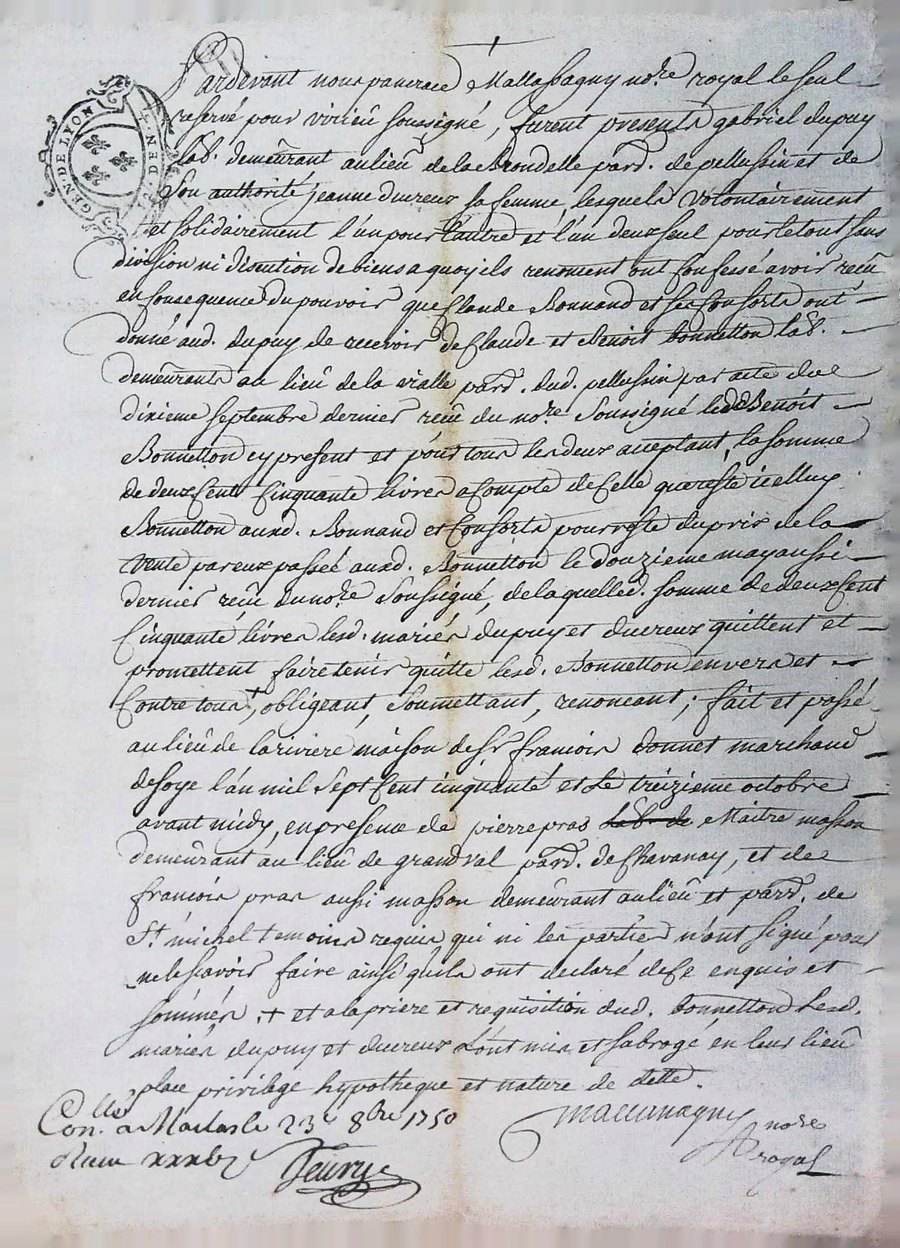 GEN. DE LYON
Pardevant nous pancrace Mallassagny no.re royal le seul
reservé pour virieu soussigné, furent presents gabriel dupuy
lab.r demeurant au lieu de la Brondelle par.d de pellussin et de
son authorité jeanne ducreux sa femme lesquels volontairement
et solidairement l'un pour l'autre et l'un deux seul pour le tout sans
division ni discution de biens a quoy ils renoncent ont confessé avoir recû
en consequence du pouvoir que Claude Bonnand et ses consorts ont
donné aud. dupuy de recevoir de Claude et Benoit bonnetton lab.r
demeurants au lieu de la vialle par.d dud. pellussin par acte du
dixieme septembre dernier recû du no.re soussigné led. Benoit
Bonnetton cy present et pour tous les deux acceptant, la somme
de deux cent cinquante livres a compte de celle que reste icelluy
Bonnetton auxd. Bonnand et consorts pour reste du prix de la
vente par eux passée auxd. Bonnetton le douzieme may aussi
dernier recû du no.re soussigné, de laquelle d. somme de deux cent
cinquante livres lesd. mariés dupuy et ducreux quittent et
promettent faire tenir quitte lesd. Bonnetton envers et
contre tous +, obligeant, soumettant, renonceant; fait et passé
au lieu de la riviere maison de S.r francois donnet marchand
de soye l'an mil sept cent cinquante et le treizieme octobre
avant midy, en presence de pierre pras lab.r de Maitre masson
demeurant au lieu de grandval par.d de Chavanay, et de
francois pras aussi masson demeurant au lieu et par.d de
S.t michel temoins requis qui ni les parties n'ont signé pour
ne le savoir faire ainsi qu'ils ont declaré de ce enquis et
sommés. + et a la priere et requisition dud. bonnetton lesd.
mariés dupuy et ducreux l'ont mis et subrogé en leur lieu
place privilege hypotheque et nature de dette.
Con.llé a Maclas le 23e 8bre 1750
Mallassagny no.re
royal
Fleury